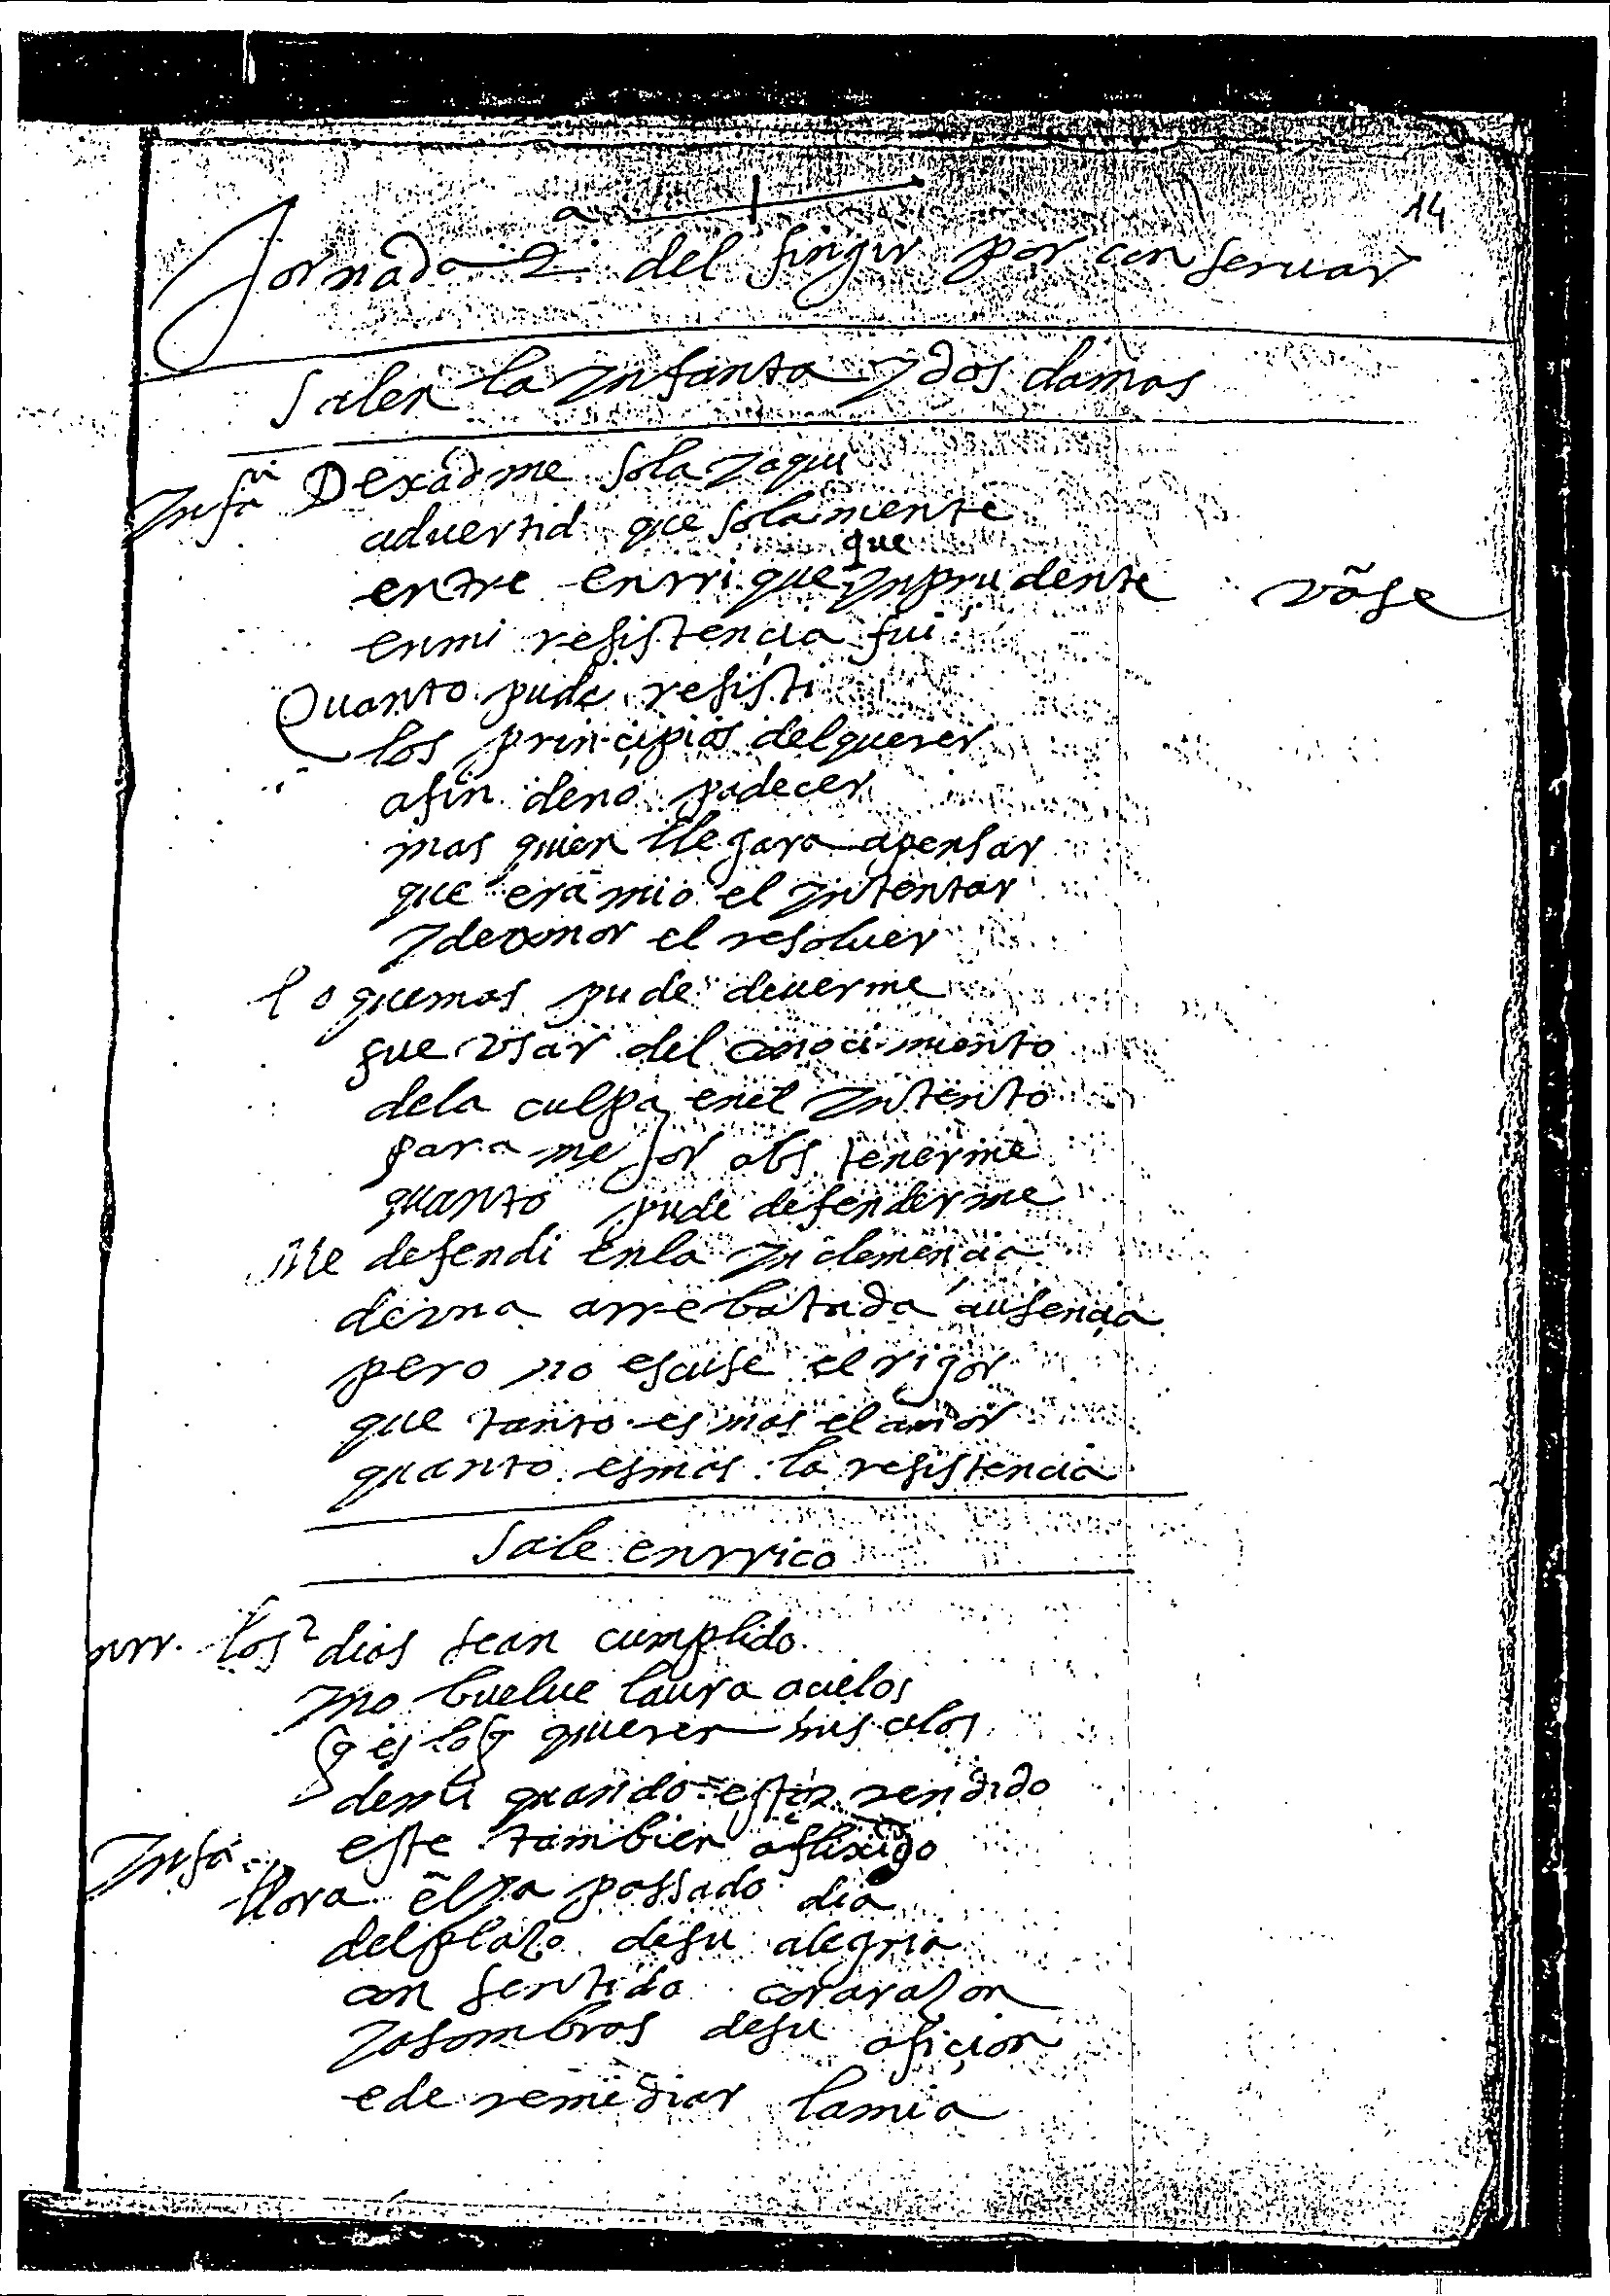 14
Jornada 2ª del fingir por conseruar
Salen la ynfanta y dos damas
ynfᵃ Dexadme sola y aqui
aduertid que solamente
que
entre enrrique ynprudente vãse
enmi resistencia fui
Quanto pude resisti
los principios delquerer
afin deno padecer
mas quien llegara apensar
que era mio el yntentar
y deamor el resoluer
lo quemas pude deuerme
fue vsar del conocimiento
dela culpa enel yntento
para mejor abstenerme
quanto pude defenderme
Me defendi enla ynclemencia
deuna arrebatada ausencia
pero no escuse el rigor
que tanto es mas el amor
quanto esmas la resistencia
Sale enrrico
enrr. los 2 dias sean cumplido
yno buelue laura acielos
q es lo q quieren mis celos
demi quando estoi rendido
ynfa. este tambien aflixido
llora el ya passado dia
delplazo desu alegria
con sentido coraraçon
y asombros desu aficion
e de remediar lamia